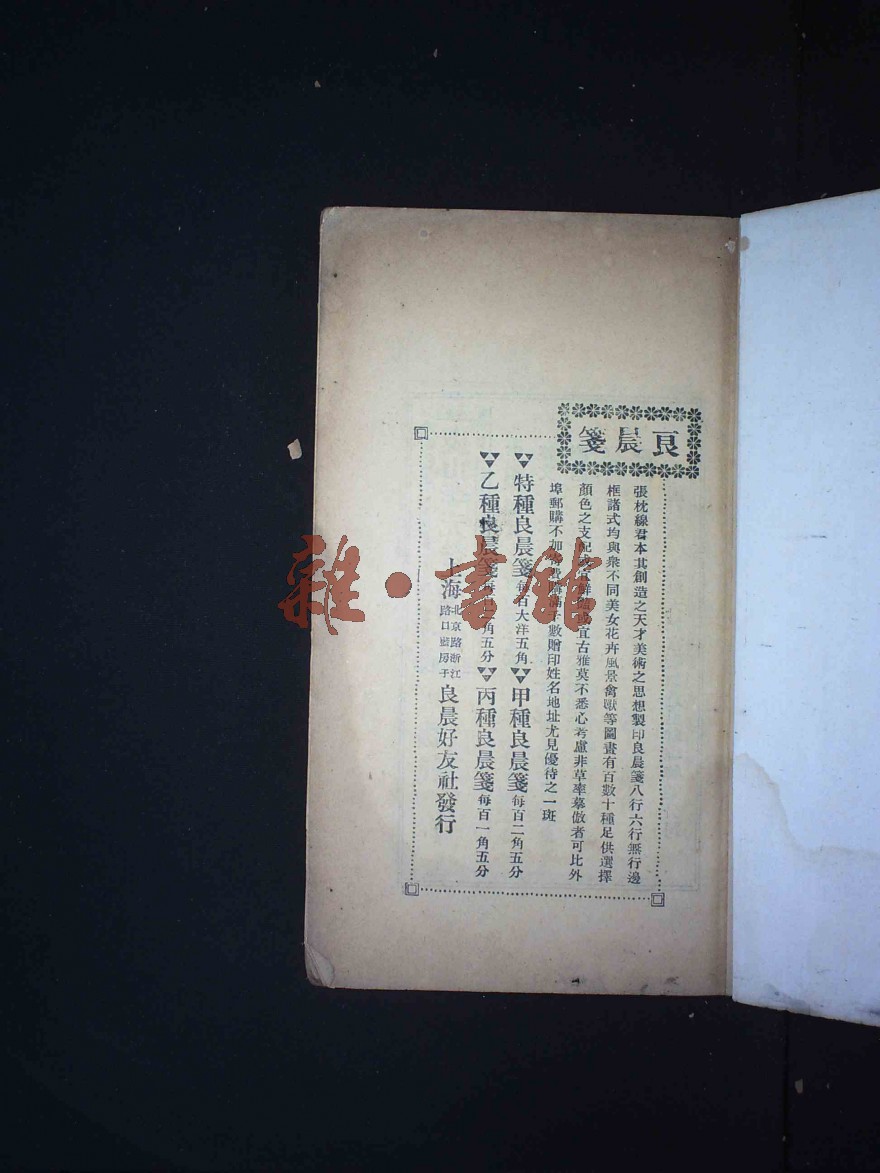 良晨箋
張枕綠君本其創造之天才美術之思想製印良晨箋八行六行無行邊
框諸式均與衆不同美女花卉風景禽獸等圖畫有百數十種足供選擇
顏色之支配或宜鮮豔或宜古雅莫不悉心考慮非草率摹倣者可比外
埠郵購不加寄費購滿千數贈印姓名地址尤見優待之一斑
特種良晨箋每百大洋五角 甲種良晨箋每百二角五分
乙種良晨箋每百 角五分 丙種良晨箋每百一角五分
上海北京路浙江路口 房子良晨好友社發行
雜·書館